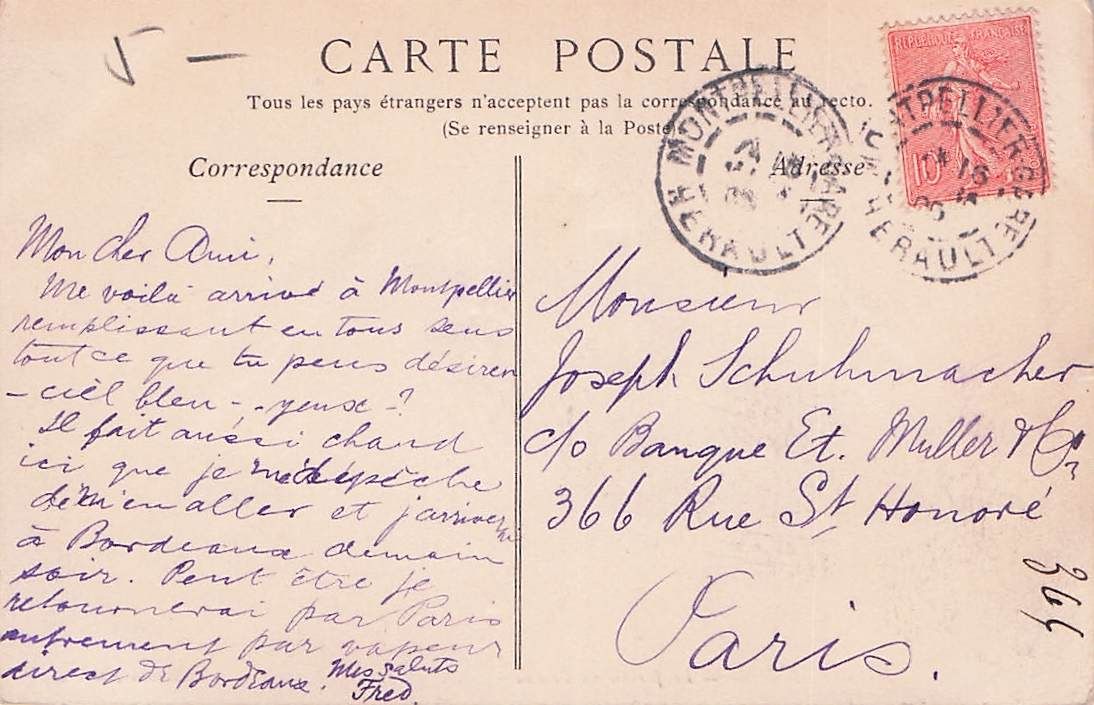 5 -
CARTE POSTALE
Tous les pays étrangers n'acceptent pas la correspondance au recto.
(Se renseigner à la Poste)
Correspondance
Adresse
REPUBLIQUE FRANÇAISE
10c
MONTPELLIER GARE
HERAULT
MONTPELLIER GARE
HERAULT
Mon cher Ami,
Me voilà arrivé à Montpellier
remplissant en tous sens
tout ce que tu peus désirer
- ciel bleu - - yeux - ?
Il fait aussi chaud
ici que je me dépêche
de m'en aller et j'arriverai
à Bordeaux demain
soir. Peut être je
retournerai par Paris
autrement par vapeur
direct de Bordeaux.
Mes saluts
Fred.
Monsieur
Joseph Schuhmacher
c/o Banque Et. Muller & Co
366 Rue St Honoré
Paris.
364